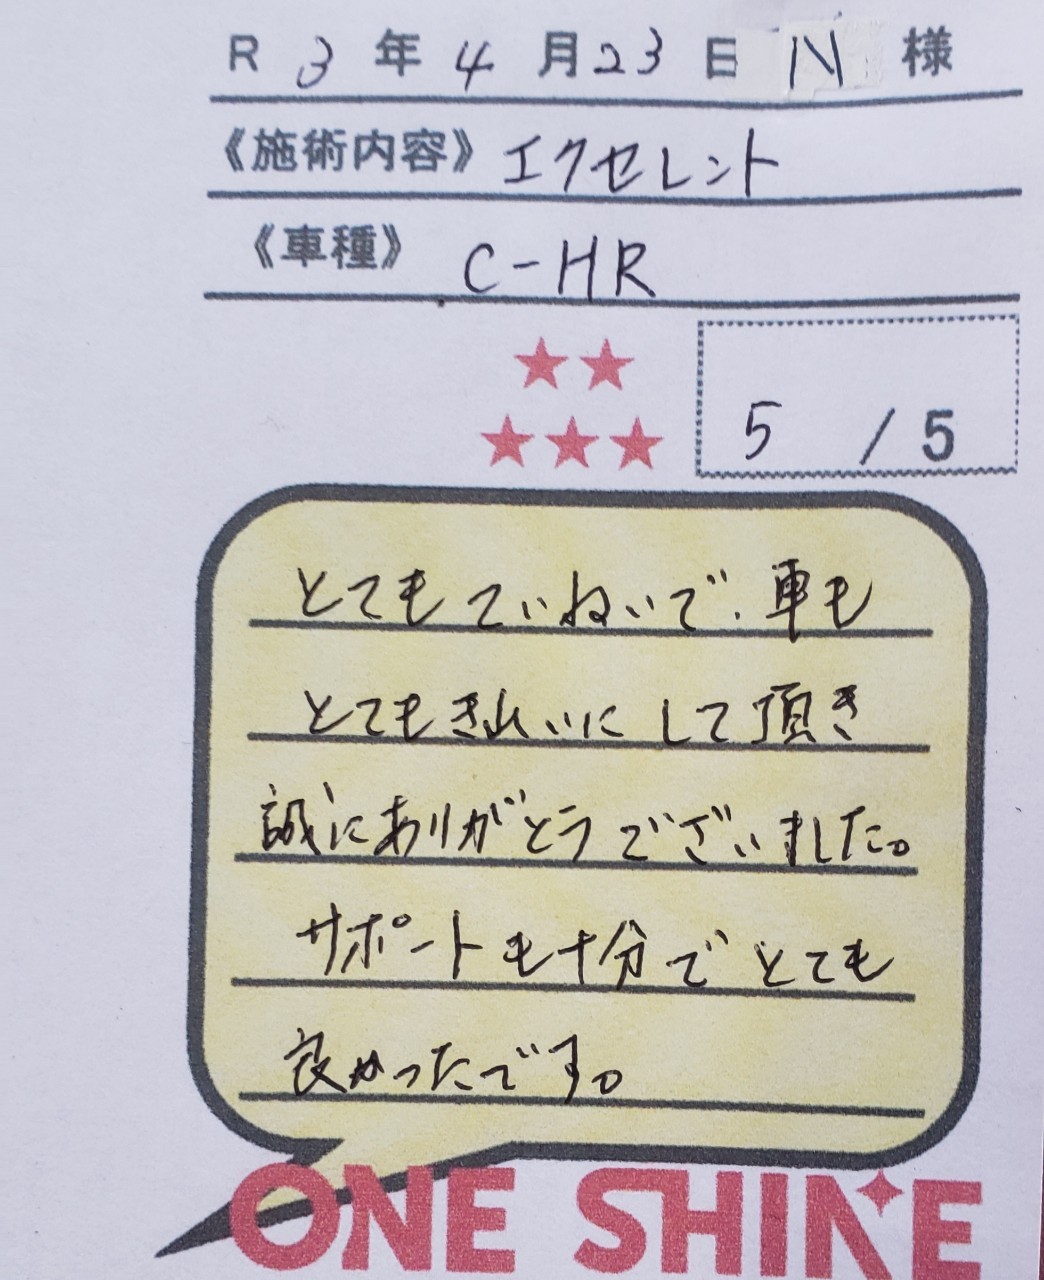 R 3 年 4 月 23 日 N 様
《施術内容》 エクセレント
《車種》 C-HR
★★
★★★
5 / 5
とてもていねいで、車も
とてもきれいにして頂き
誠にありがとうございました。
サポートも十分でとても
良かったです。
ONE SHINE